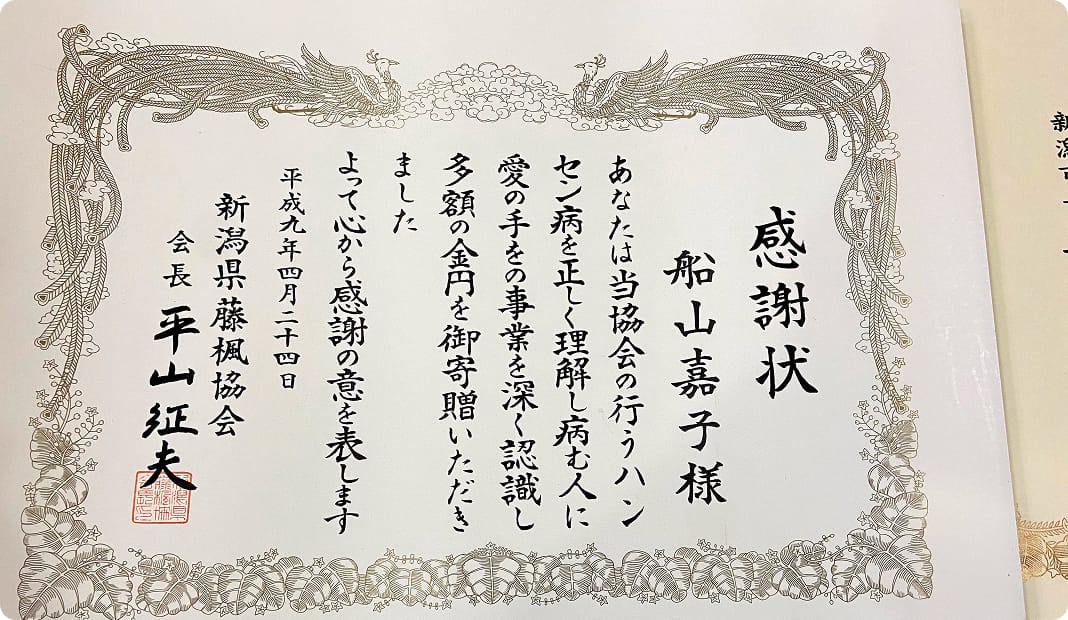 感謝状
船山嘉子様
あなたは当協会の行うハン
セン病を正しく理解し病む人に
愛の手をの事業を深く認識し
多額の金円を御寄贈いただき
ました
よって心から感謝の意を表します
平成九年四月二十四日
新潟県藤楓協会
会長 平山征夫
新潟市